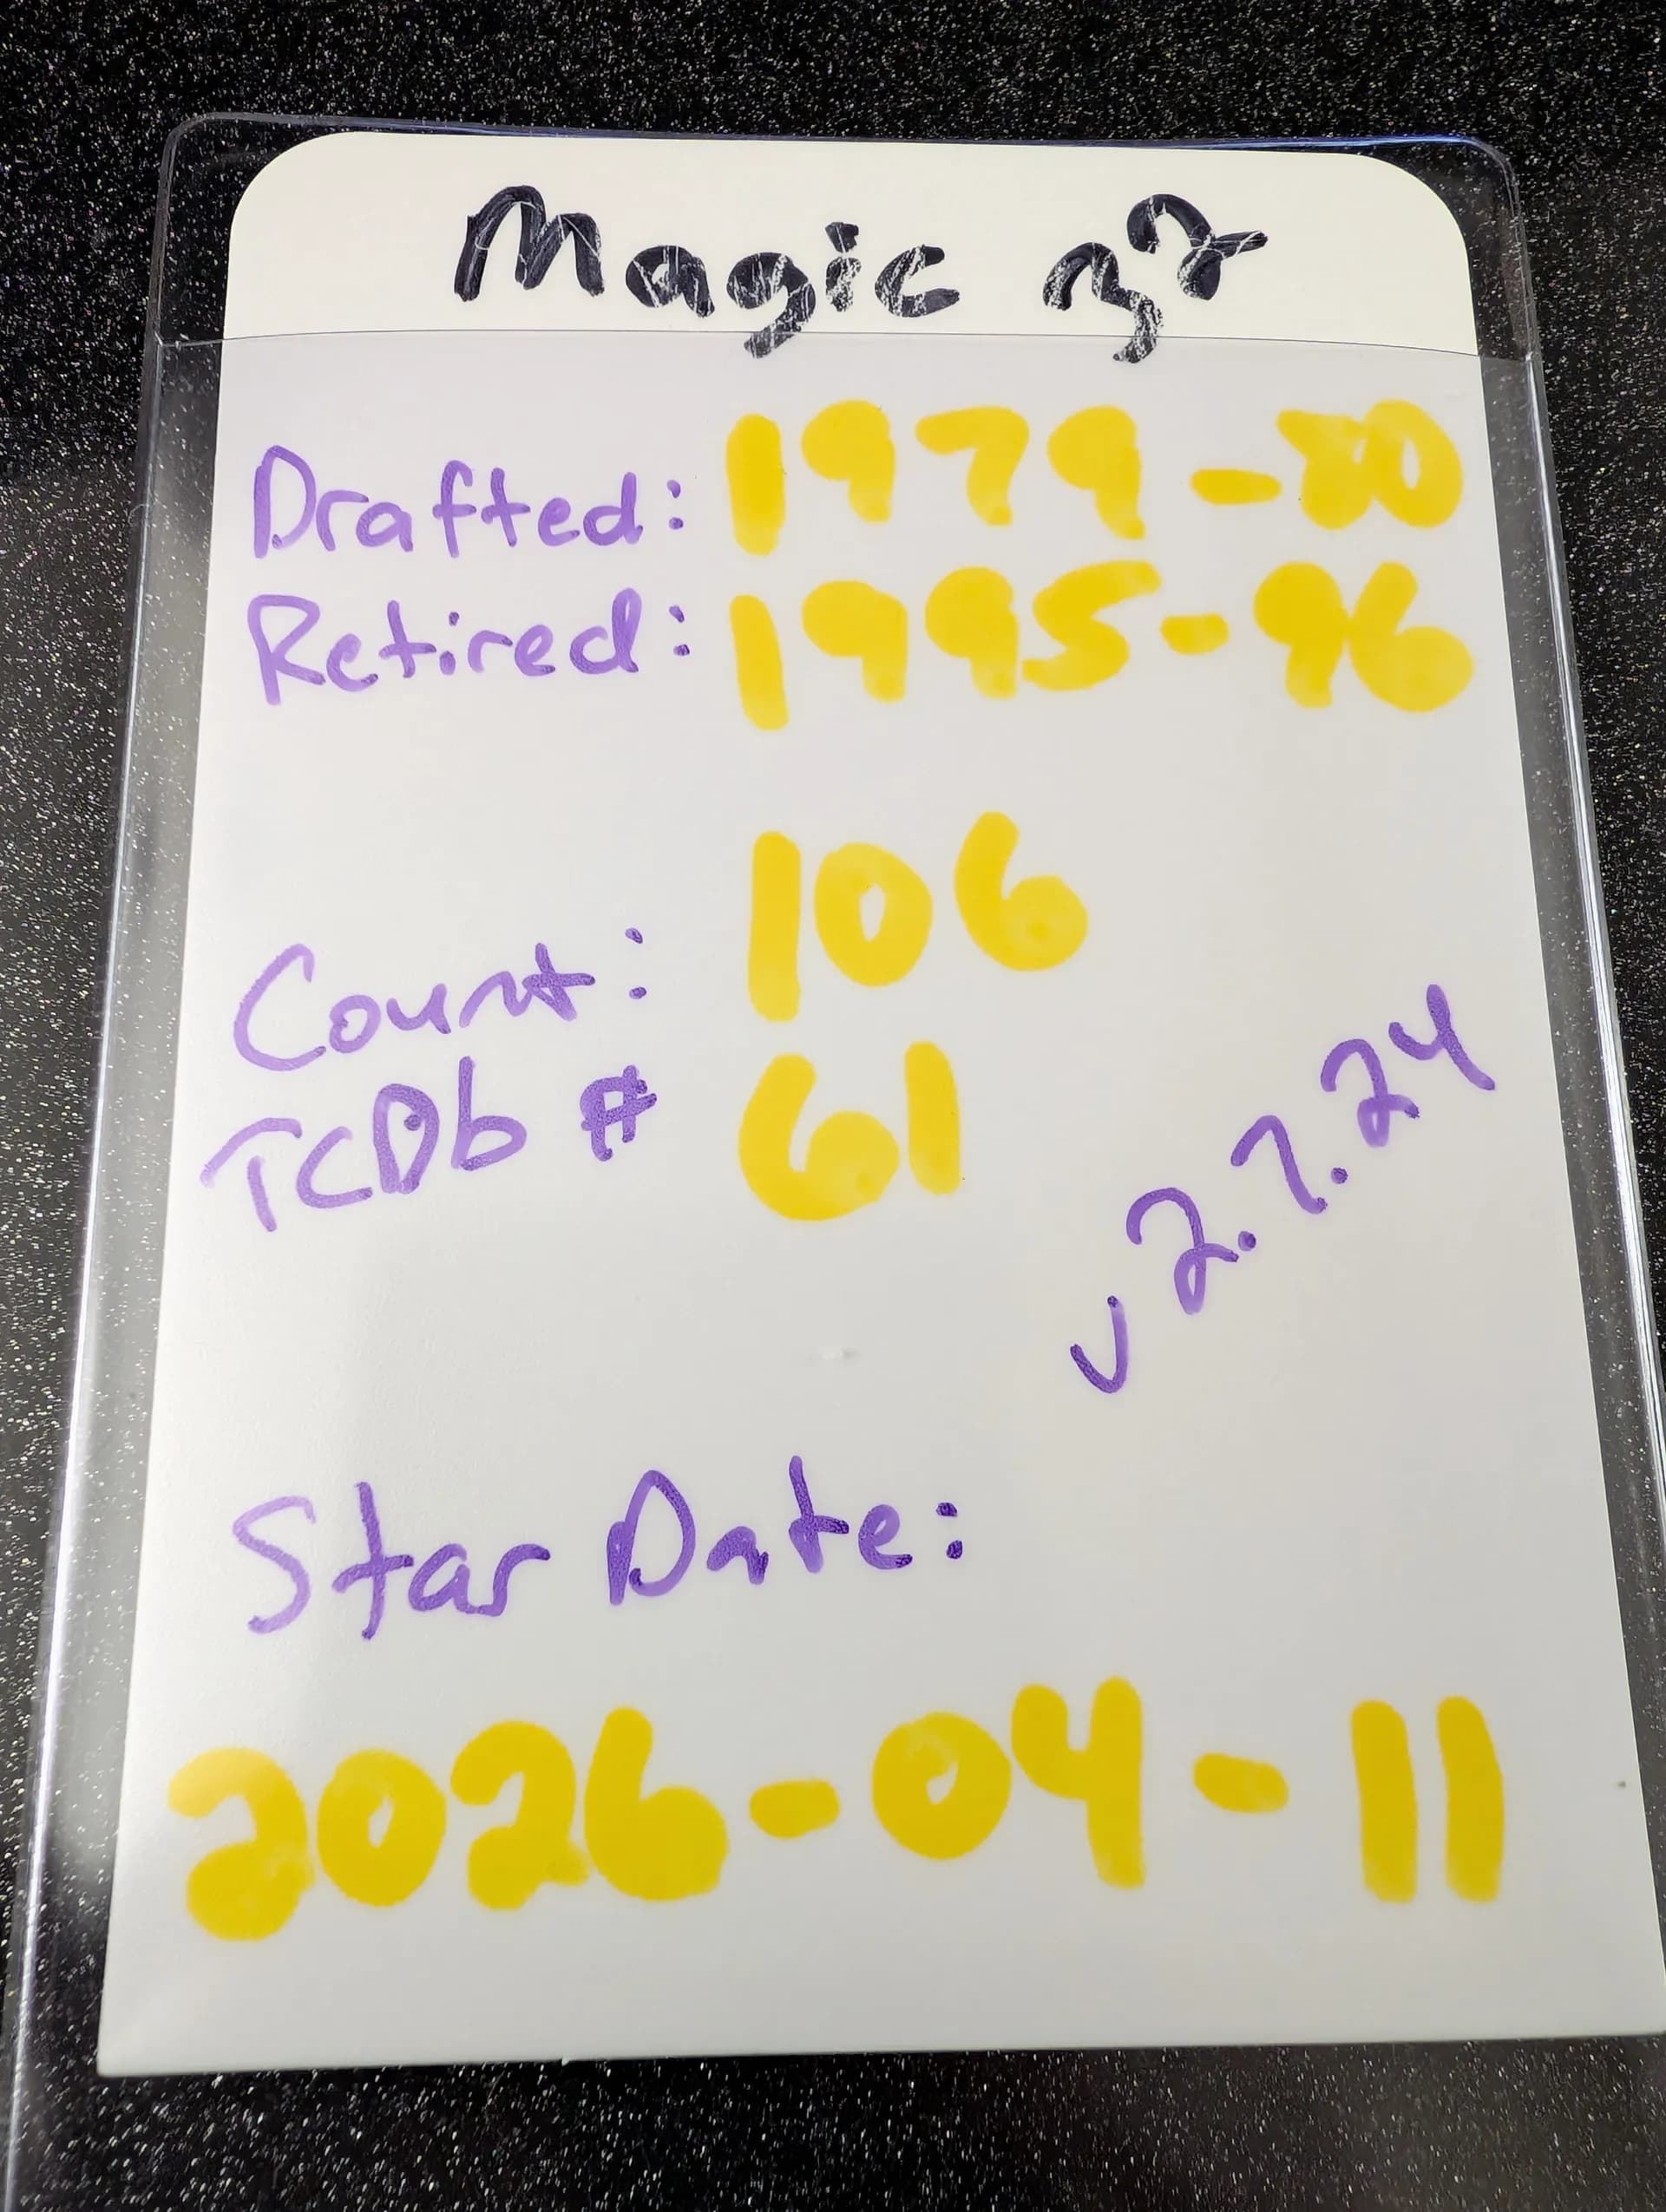 Magic 32
Drafted: 1979-80
Retired: 1995-96
Count: 106
TCDb # 61
v2.7.24
Star Date:
2026-04-11